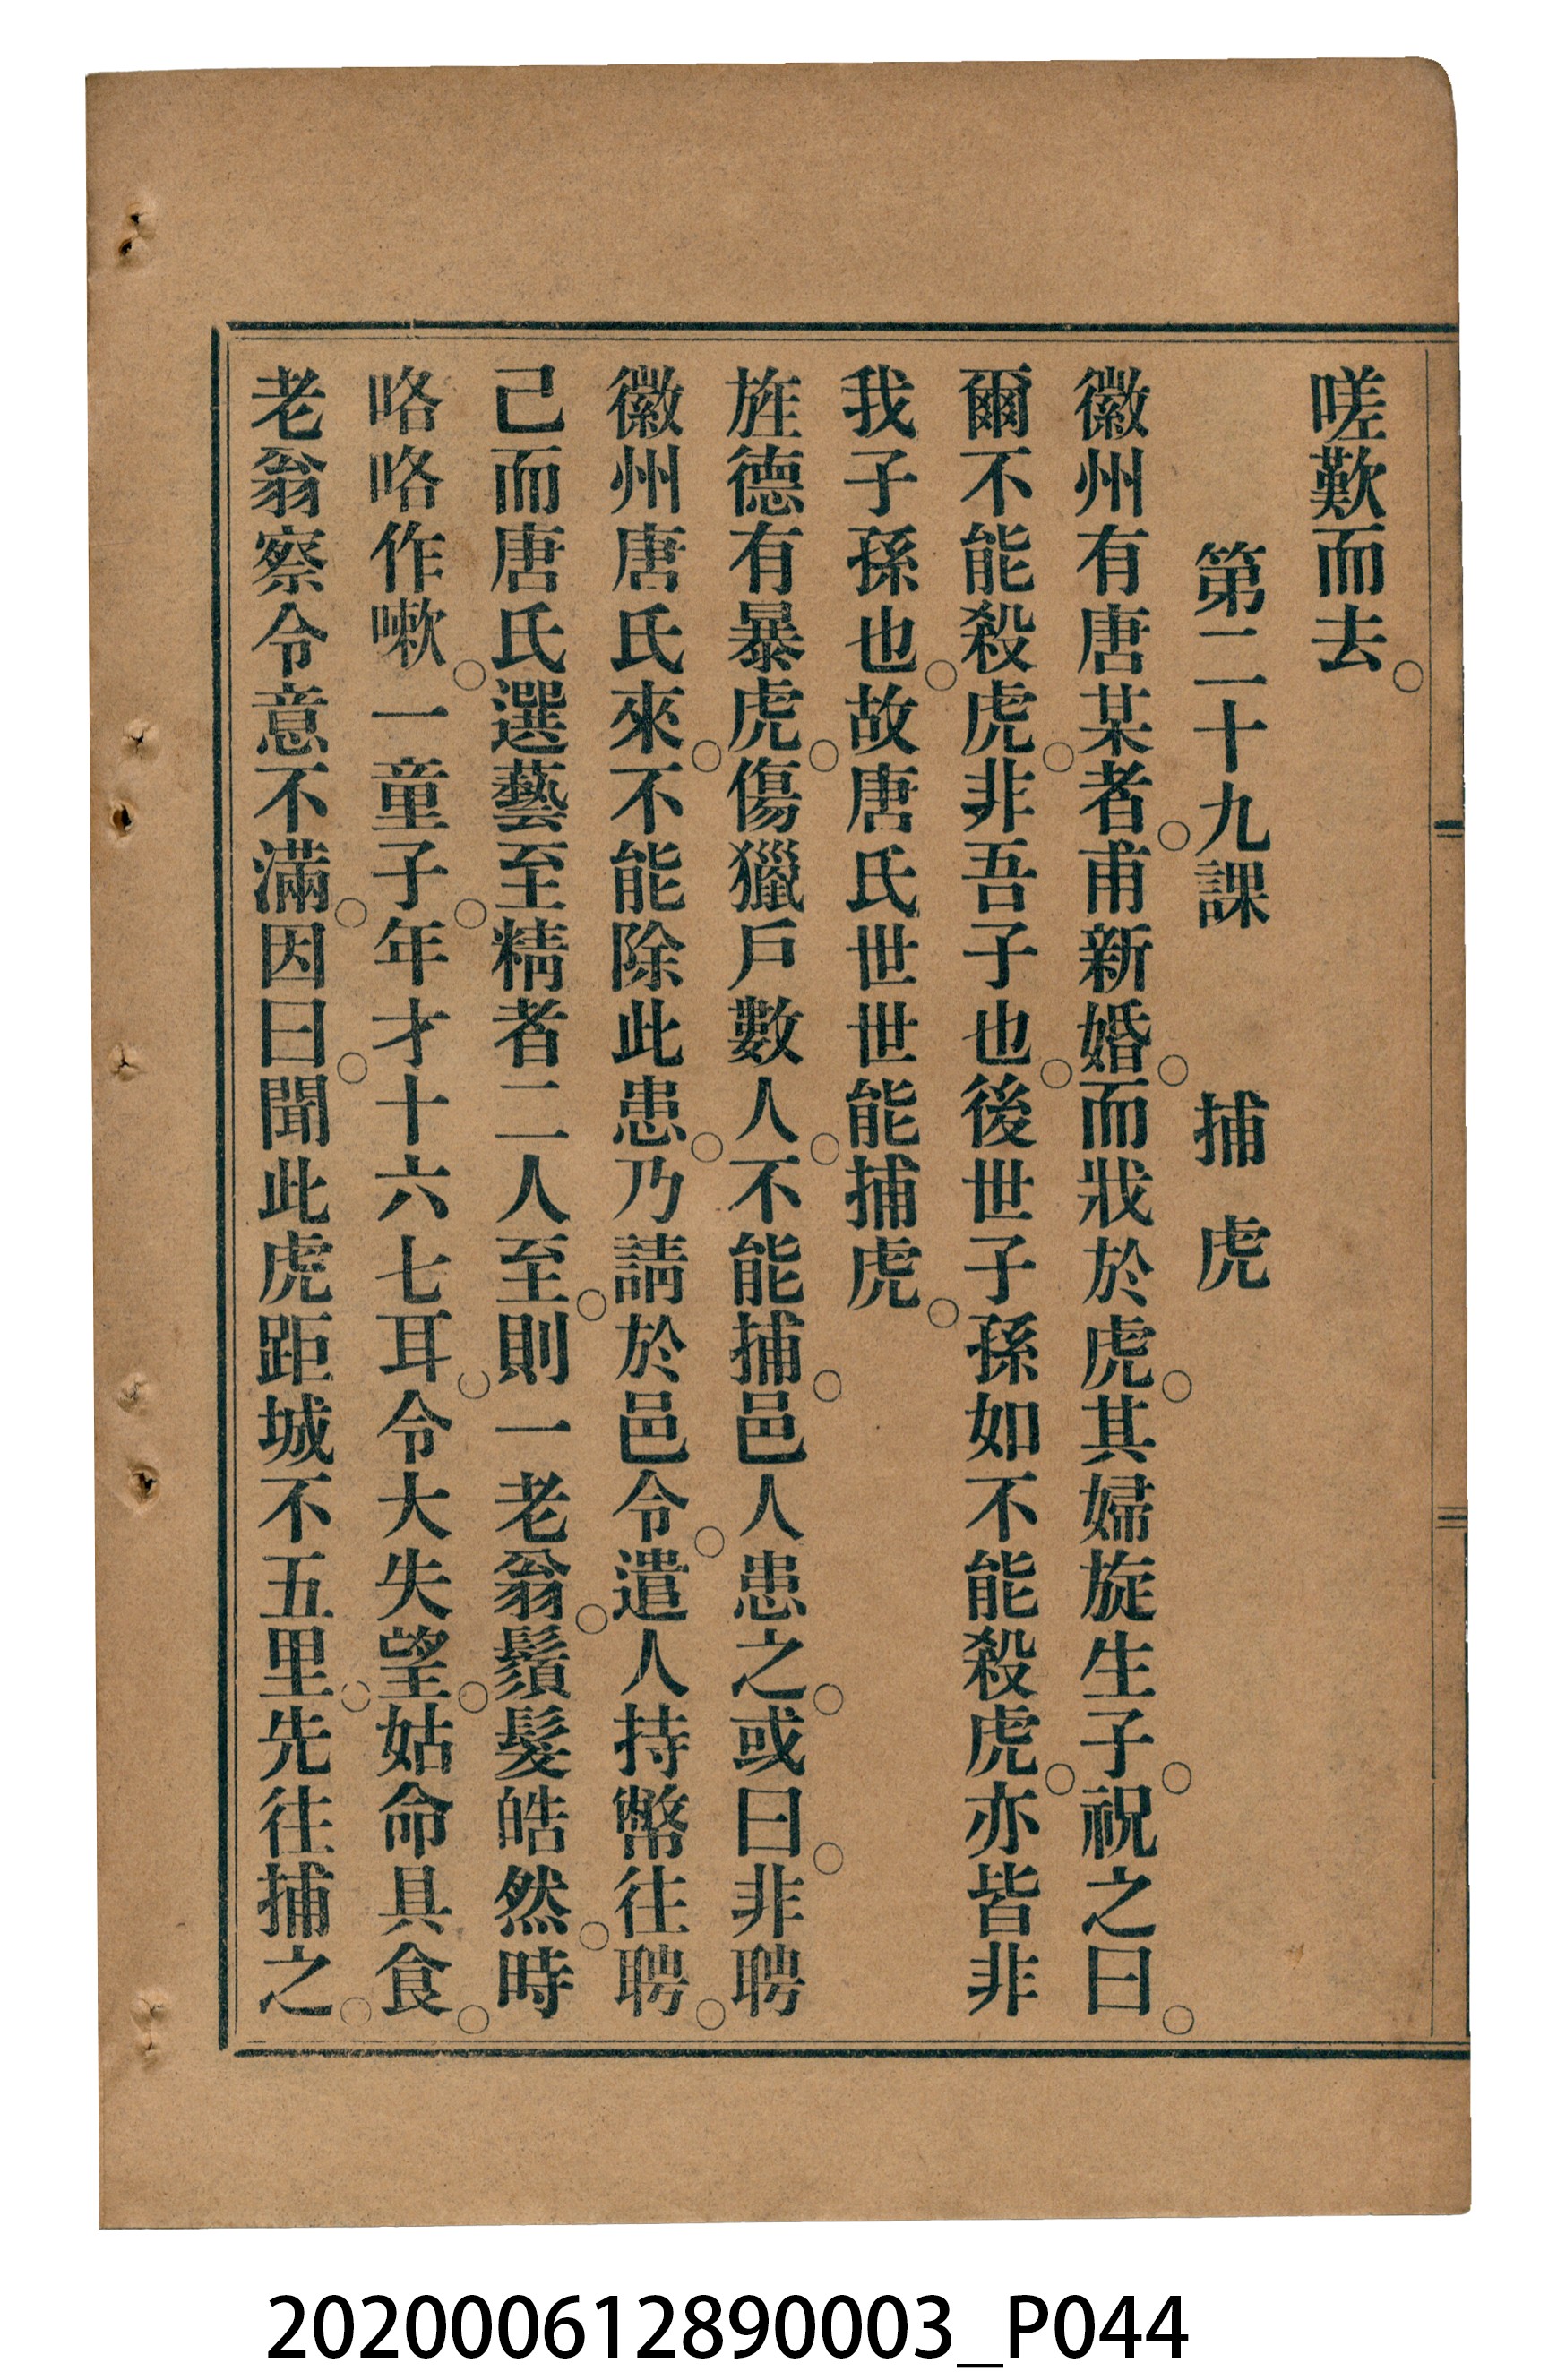 嗟歎而去。
第二十九課　捕虎
徽州有唐某者。甫新婚。而戕於虎。其婦旋生子。祝之曰。
爾不能殺虎。非吾子也。後世子孫如不能殺虎。亦皆非
我子孫也。故唐氏世世能捕虎。
旌德有暴虎。傷獵戶數人。不能捕。邑人患之。或曰。非聘
徽州唐氏來。不能除此患。乃請於邑令。遣人持幣往聘。
已而唐氏選藝至精者二人至。則一老翁。鬚髮皓然。時
咯咯作嗽。一童子。年才十六七耳。令大失望。姑命具食。
老翁察令意不滿。因曰。聞此虎距城不五里。先往捕之。
202000612890003_P044